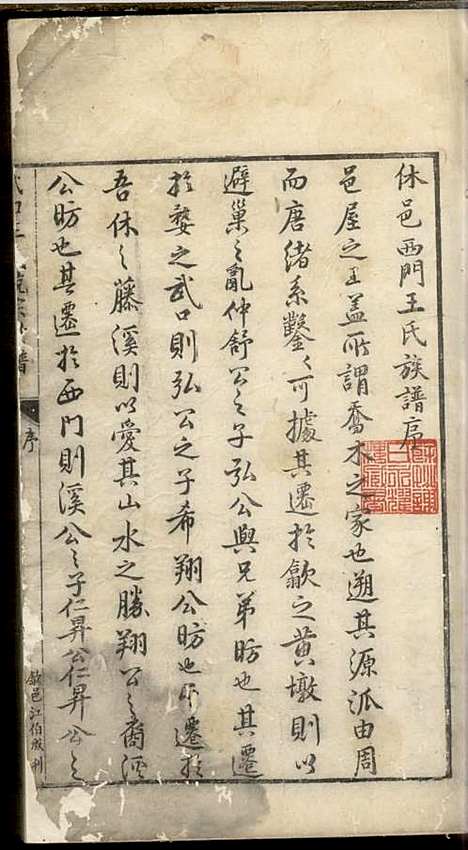 休邑西門王氏族譜序
邑屋之王盖所謂喬木之家也遡其源派由周
而唐緒系鑿〻可據其遷於歙之黄墩則以
避巢之亂仲舒公之子弘公與兄弟昉也其遷
於婺之武口則弘公之子希翔公昉也厥遷於
吾休之藤溪則以愛其山水之勝翔公之裔
公昉也其遷於西門則溪公之子仁昇公仁昇公之
譜
序
歙邑江伯成刊